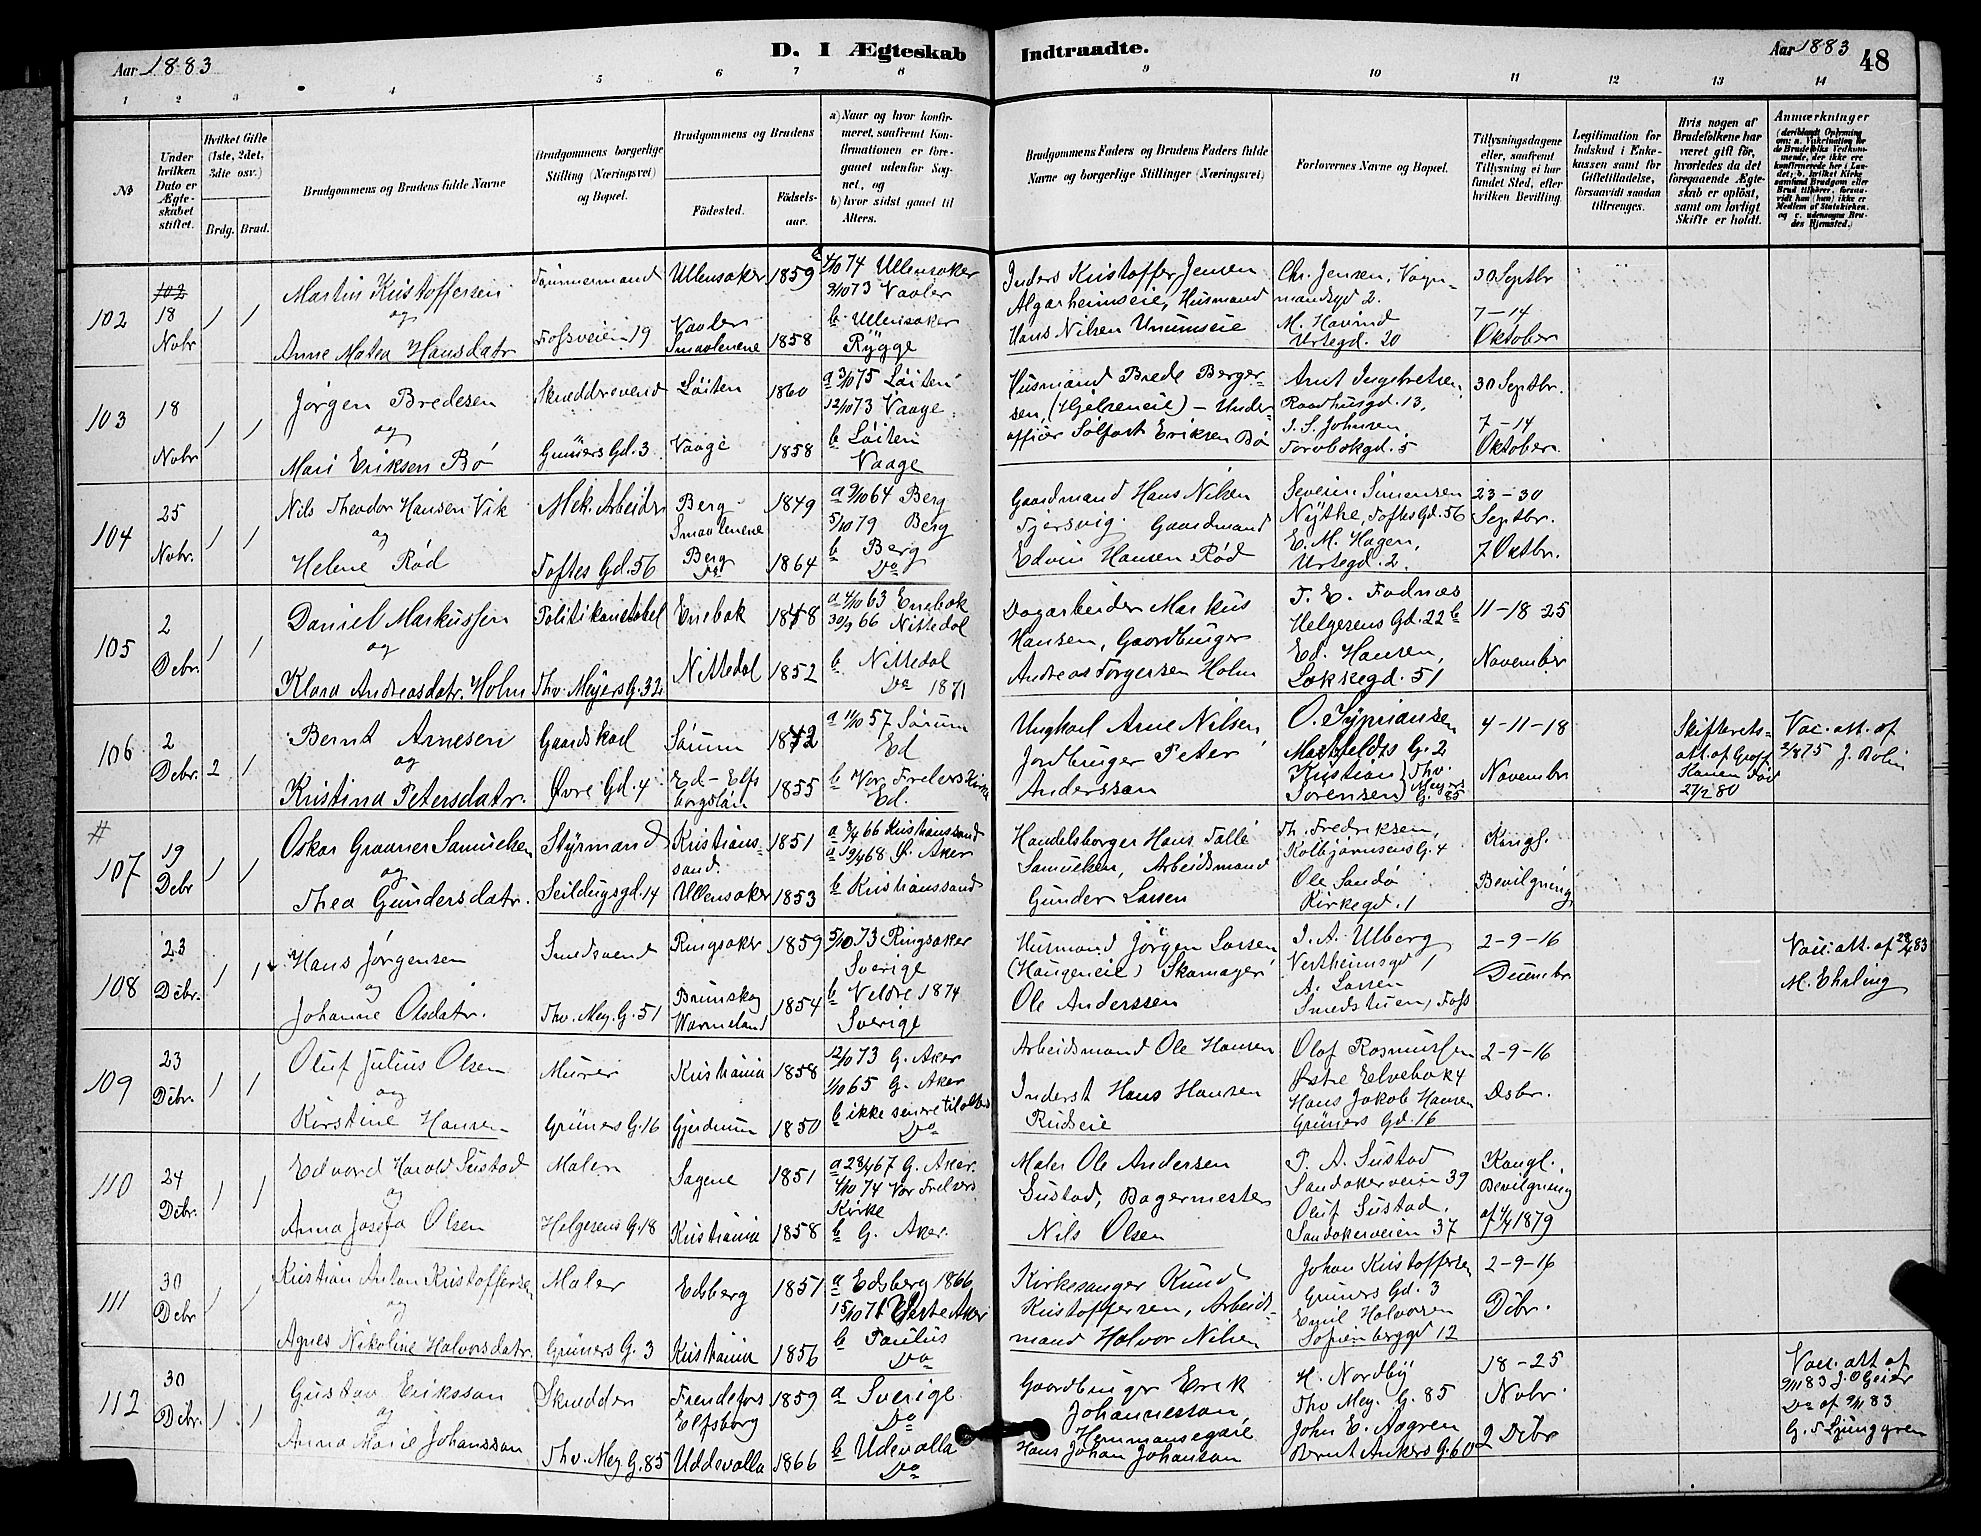 Aar 1883
D. I Ægteskab Indtraadte.
Aar 1883
48
1 2 3 4 5 6 7 8 9 10 11 12 13 14
№
Under hvilken Dato er Ægteskabet stiftet.
Hvilket Gifte (1ste, 2det, 3die osv.)
Brdg. Brud.
Brudgommens og Brudens fulde Navne
Brudgommens borgerlige Stilling (Næringsvei) og Bopæl.
Brudgommens og Brudens
Fødested.
Fødselsaar.
a) Naar og hvor konfirmeret, saafremt Konfirmationen er foregaaet udenfor Sognet, og
b) hvor sidst gaaet til Alters.
Brudgommens Faders og Brudens Faders fulde Navne og borgerlige Stillinger (Næringsvei)
Forlovernes Navne og Bopæl.
Tillysningsdagene eller, saafremt Tillysning ei har fundet Sted, efter hvilken Bevilling.
Legitimation for Indskud i Enkekassen samt for Giftetilladelse, forsaavidt saadan tiltrænges.
Hvis nogen af Brudefolkene har været gift før, hvorledes da det foregaaende Ægteskab er opløst, samt om lovligt Skifte er holdt.
Anmærkninger
102
18 Novbr
1 1
Martin Kristoffersen
og
Anne Matea Hansdatr
Tømmermand
Fossveien 19
Ullensaker 1859
Vaaler Smaalenene 1858
4/10 74 Ullensaker
9/10 73 Vaaler
b Ullensaker
Rygge
Inders Kristoffer Jensen
Algarheimseie, Husmand
Hans Nilsen Unumseie
Chr. Jensen, Vogn-
mandsgd 2.
M. Havind
Urtegd. 20
30 Septbr
7-14
Oktober
103
18 Nobr
1 1
Jørgen Bredesen
og
Mari Eriksen Bø
Skræddersvend
Grüners Gd. 3
Løiten 1860
Vaage 1858
a 3/10 75 Løiten
12/10 73 Vaage
b Løiten
Vaage
Husmand Brede Berger-
sen, (Hjelseneie) - Under-
officer Solfest Eriksen Bø
Arnt Ingebretsen,
Raadhusgd. 13,
J. S. Johnsen,
Torvbakgd. 5
30 Septbr.
7-14
Oktober.
104
25 Nobr.
1 1
Nils Theodor Hansen Vik
og
Helene Rød
Mek. Arbeider
Toftes Gd. 56
Berg Smaalenene 1849
Berg Do 1864
a 9/10 64 Berg
5/10 79 Berg
b Berg
Do
Gaardmand Hans Nilsen
Tjersvig. Gaardmand
Edvin Hansen Rød
Severin Simensen
Nythe, Toftes Gd. 56
E. M. Hagen,
Urtegd. 2.
23-30
Septbr.
7 Oktbr.
105
2 Debr.
1 1
Daniel Markussen
og
Klara Andreasdatr. Holm
Politikonstabel
Thv. Meyers G. 32
Enebak 1848
Nittedal 1852
a 4/10 63 Enebak
30/9 66 Nittedal
b Nittedal
Do 1871
Dagarbeider Markus
Hansen, Gaardbruger
Andreas Torgersen Holm
T. E. Fodnæs
Helgesens Gd. 22 b
Ed. Hansen,
Løkkegd. 51
11-18-25
November
106
2 Debr.
2 1
Bernt Arnesen
og
Kristina Petersdatr.
Gaardskarl
Øvre Gd. 4
Sørum 1842
Ed - Elfsborgslän 1855
a 11/10 57 Sørum
Ed
b Vor Frelsers Kirke
Ed.
Ungkarl Arne Nilsen,
Jordbruger Peter
Anderssan
O. Syprianson
Markveidts G. 2
Kristian Thv.
Sørensen Meyers G. 25
4-11-18
Novembr
Skifterets-
att. af Groff
Hansen Fød
27/2 80
Vac. att. af
2/8 75 J. Bolin
#
107
19 Debr
1 1
Oskar Graaner Samuelsen
og
Thea Gundersdatr.
Styrmand
Seildugsgd. 14
Kristianssand. 1851
Ullensaker 1853
a 8/4 66 Kristianssand
a 19/4 68 Ø. Aker
b Kristianssand
Handelsborger Hans Talle
Samuelsen, Arbeidsmand
Gunder Larsen
Th. Fredriksen,
Kolbjørnsens G. 4
Ole Sandø
Kirkegd. 1
Kongl.
Bevilgning
108
23 Debr.
1 1
Hans Jørgensen
og
Johanne Olsdatr.
Smedsvend
Thv. Mey. G. 51
Ringsaker 1859
Brunskog Wærmeland 1854
5/10 73 Ringsaker
Sverige
b Veldre 1874
Sverige
Husmand Jørgen Larsen
(Haugeneie) Skomager
Ole Anderssen
J. A. Ulberg
Vertheimsgd 1
A. Larsen
Smedstuen, Foss
2-9-16
Decembr
Vac. att. af 28/4 83
M. Ehrling
109
23 Debr.
1 1
Oluf Julius Olsen
og
Kirstine Hansen
Murer
Grüners G. 16
Kristiania 1858
Gjerdrum 1850
12/10 73 G. Aker
1/10 65 G. Aker
b ikke senere til alters
Do
Arbeidsmand Ole Hansen
Inderst Hans Hansen
Rudseie
Olaf Rasmussen
Østre Elvebak 4
Hans Jakob Hansen
Grüners Gd. 16
2-9-16
Dsbr.
110
24 Debr.
1 1
Edvard Harald Sustad
og
Anna Josefa Olsen
Maler
Helgesens G. 18
Sagene 1851
Kristiania 1858
a 23/4 67 G. Aker.
4/10 74 Vor Frelsers
Kirke
b G. Aker.
Maler Ole Andersen
Sustad, Bagermester
Nils Olsen
P. A. Sustad
Sandakerveien 39
Oluf Sustad.
Sandakerveien 37
Kongl.
Bevilgning
af 4/4 1879
111
30 Debr
1 1
Kristian Anton Kristoffersen
og
Agnes Nikoline Halvorsdatr.
Maler
Grüners G. 3
Edsberg 1851
Kristiania 1856
a Edsberg 1866
15/10 71 Østre Aker
b Paulus
Do
Kirkesanger Knud
Kristoffersen, Arbeids-
mand Halvor Nilsen
Johan Kristoffersen
Grüners Gd. 3
Emil Halvorsen
Sofienberggd 12
2-9-16
Debr.
112
30 Debr.
1 1
Gustav Eriksson
og
Anna Marie Johansson
Skrædder
Thv. Mey G. 85
Frendefors Elfsborg 1859
Uddevalla 1866
a Sverige
Do
b Udevalla
Do
Gaardbruger Erik
Johannesson,
Hemmansegare
Hans Johan Johanson
H. Nordby
Thv Mey. G. 85
John E. Aagren
Bernt Ankers G. 60
18-25
Nobr.
2 Debr
Vac. att af
9/11 83 J. O Geiér
Do af 9/11 83
G. F Ljunggren